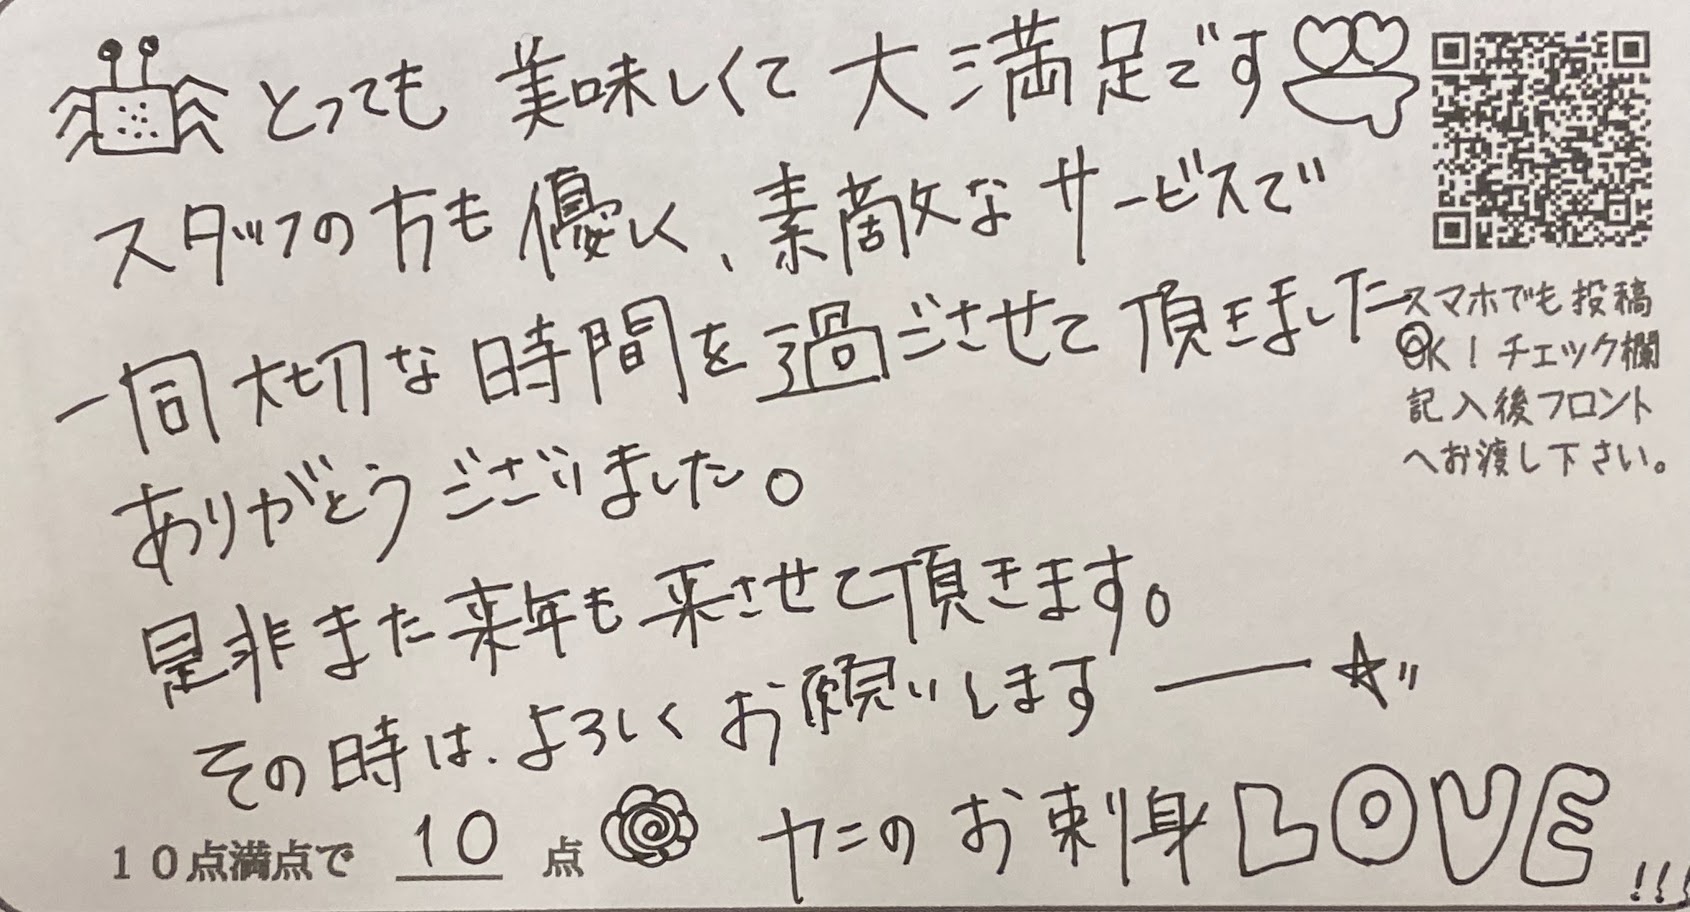 とっても 美味しくて 大満足です
スタッフの方も優しく、素敵なサービスで
一同大切な時間を過ごさせて頂きました
ありがとうございました。
是非また来年も来させて頂きます。
その時は、よろしくお願いします ── ☆〃
10点満点で 10 点
カニのお刺身 LOVE!!!
スマホでも投稿
OK!チェック欄
記入後フロント
へお渡し下さい。